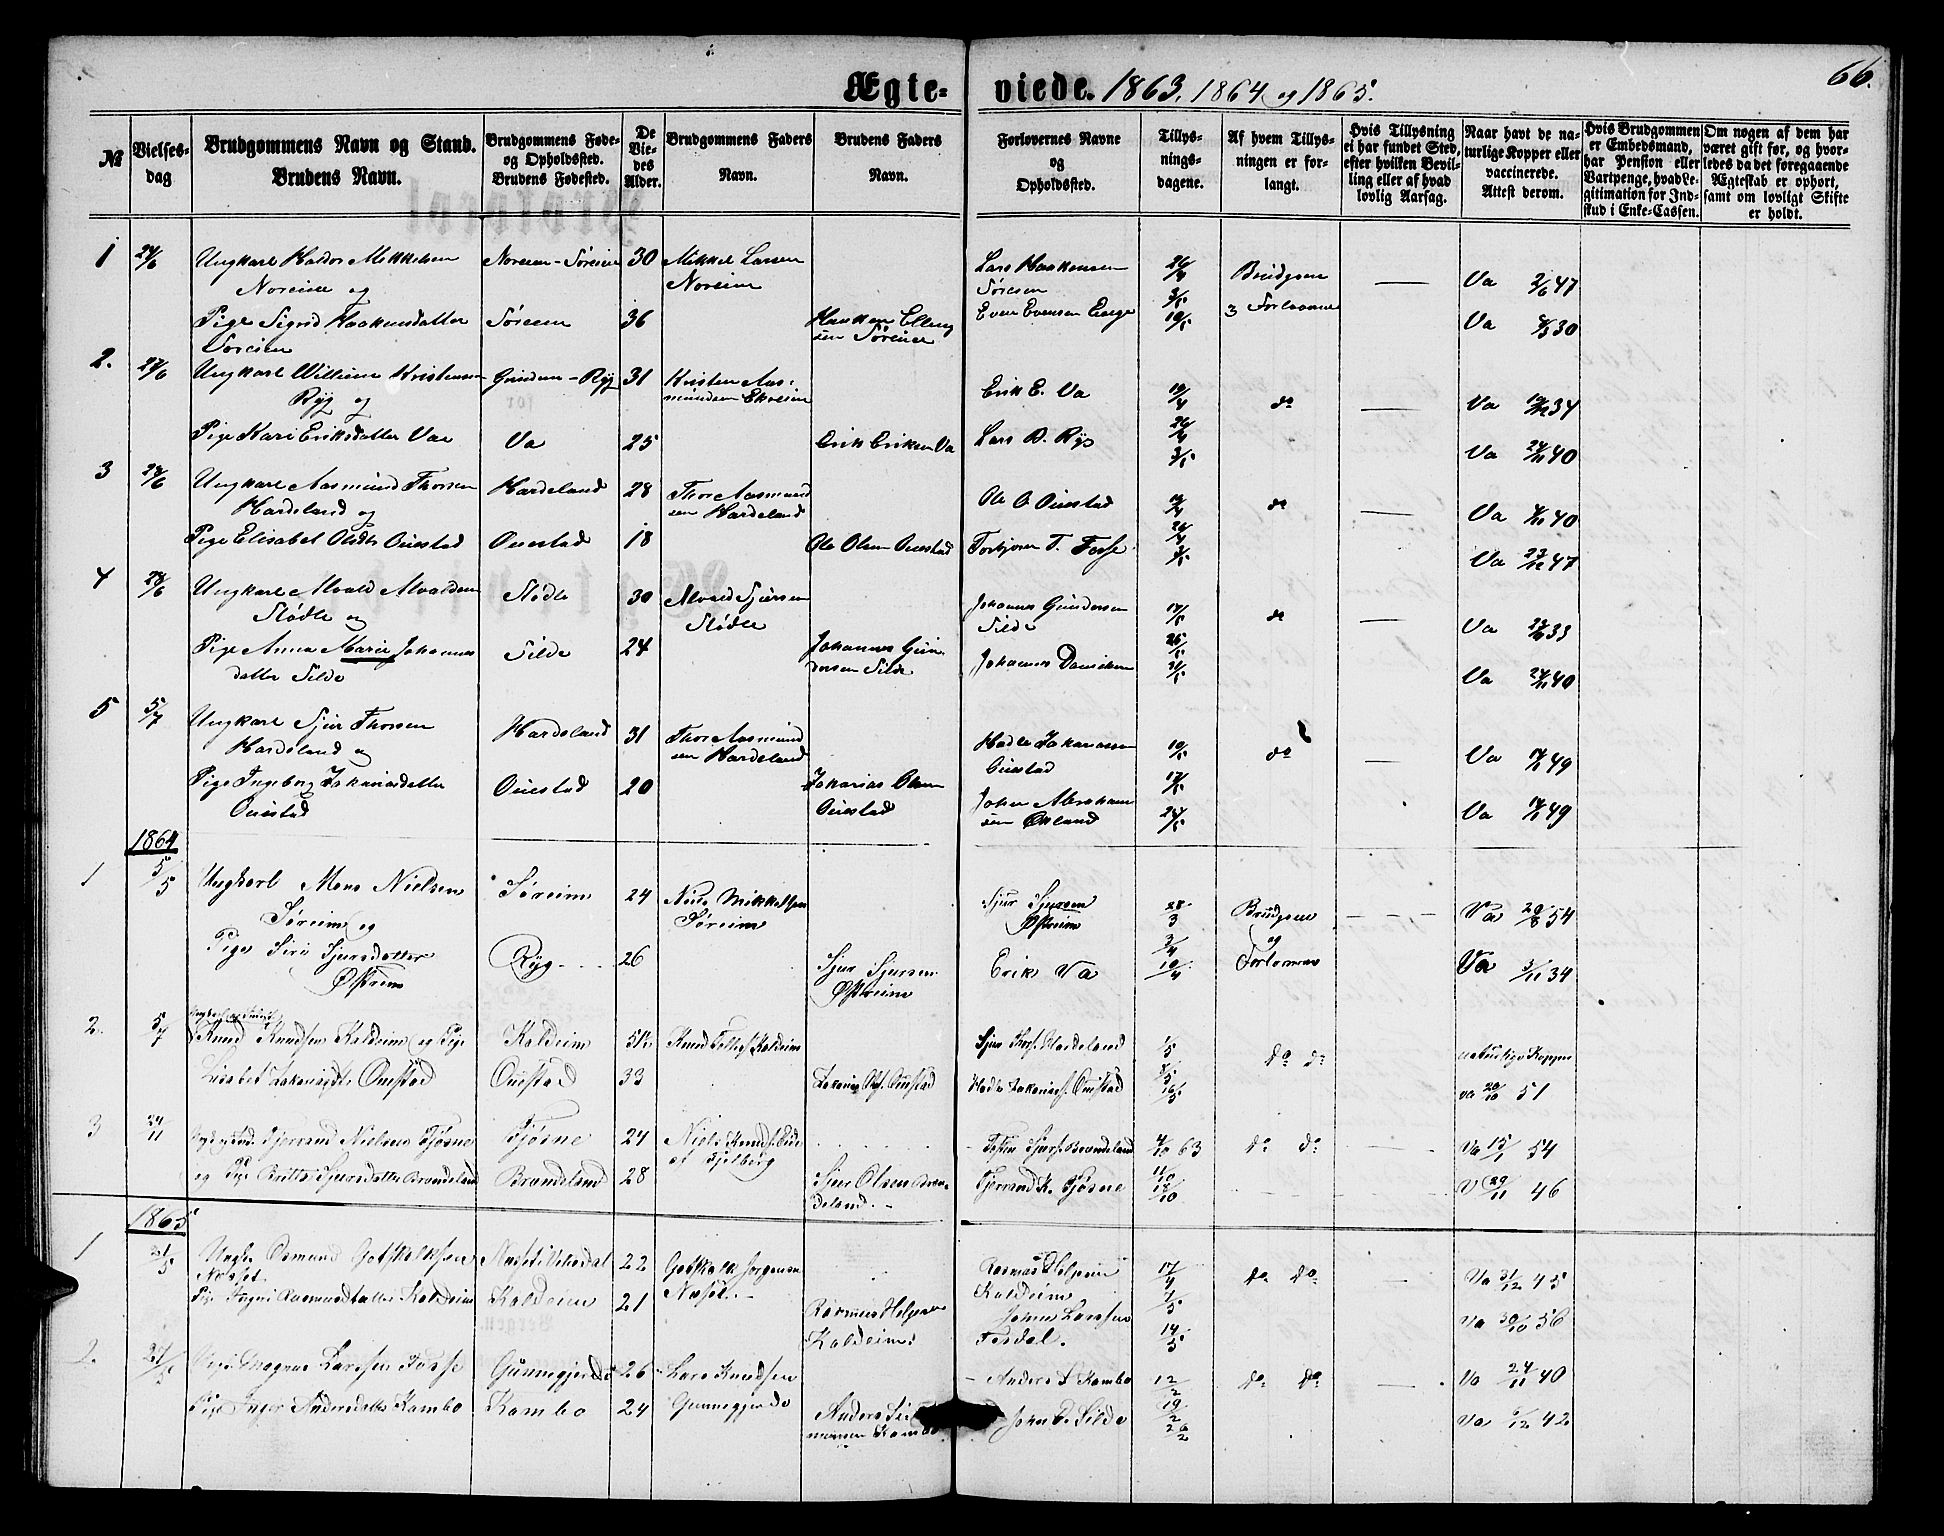 Ægte- viede. 1863, 1864 og 1865. 66.
№
Vielses-dag
Brudgommens Navn og Stand.
Brudens Navn.
Brudgommens Føde- og Opholdssted.
Brudens Fødested.
De Viedes Alder.
Brudgommens Faders Navn.
Brudens Faders Navn.
Forlovernes Navne og Opholdssted.
Tillysningsdagene.
Af hvem Tillysningen er forlangt.
Hvis Tillysning ei har fundet Sted, efter hvilken Bevilling eller af hvad lovlig Aarsag.
Naar havt de naturlige Kopper eller vaccinerede. Attest derom.
Hvis Brudgommen er Embedsmand, har Pension eller Vartpenge, hvad Legitimation for Indskud i Enke-Cassen.
Om nogen af dem har været gift før, og hvorledes da det foregaaende Ægteskab er ophørt, samt om lovligt Skifte er holdt.
1 24/6 Ungkarl Haldor Mikkelsen Noreim og Noreim - Søreim 30 Mikkel Larsen Noreim Lars Haakensen Søreim 26/4 Brudgom 3 Forlovere Va 2/6 47
Pige Sigrid Haakensdatter Søreim Søreim 36 Haaken Ellingsen Søreim Even Evensen 3/5 10/5 Va 30
2. 24/6 Ungkarl Willum Kristensen Ryg og Grinden - Ryg 31 Kristen Aasmundsen Ekreim Erik E. Va 19/4 do Va 34
Pige Kari Eriksdatter Va Va 25 Erik Eriksen Va Lars D. Ryg 26/4 3/5 Va 24/11 40
3 24/6 Ungkarl Aasmund Thorsen Hardeland og Hardeland 28 Thor Aasmundsen Hardeland Ole O Ouestad 19/4 do Va 40
Pige Elisabet Olsdtr Ouestad Ouestad 18 Ole Olsen Ouestad Torbjørn T. Fosse 26/4 3/5 Va 23/12 47
4 28/6 Ungkarl Alvald Alvaldsen Flødle og Flødle 30 Alvald Sjursen Flødle Johannes Gundersen Silde 17/5 do Va 33
Pige Anna Marie Johannesdatter Silde Silde 24 Johannes Gundersen Silde Johannes Danielsen 25/5 31/5 Va 24/11 40
5 5/7 Ungkarl Sjur Thorsen Hardeland og Hardeland 31 Thor Aasmundsen Hardeland Hadle Zakariassen Ouestad 10/5 do Va 49
Pige Ingeborg Zakariasdatter Ouestad Ouestad 20 Zakarias Olsen Ouestad John Abrahamsen Østland 17/5 24/5 Va 49
1864
1 5/5 Ungkarl Mons Nielsen Søreim og Søreim 24 Niels Mikkelsen Søreim Sjur Sjursen Østreim 28/3 Brudgom og Forlovere Va 20/8 54
Pige Siri Sjursdatter Østreim Ryg 26 Sjur Sjursen Østreim Erik Va 3/4 10/4 Va 3/11 34
2. 5/7 Knud Knudsen Kaldeim og Pige Kaldeim 51 Knud Kaldeim Sjur Thors. Hardeland 1/5 do do naturlige Kopper
Lisabet Zakariasdtr Ouestad Ouestad 33 Zakarias Ols. Ouestad Hadle Zakariass. Ouestad 8/5 16/5 va 20/10 51
3 24/11 Tjerrand Nielsen Tjøsne Tjøsne 24 Niels Knuds. Tjelberg Sjurs. Brændeland 4/10 63 do do Va 15/1 54
og Pige Britta Sjursdatter Brændeland Brændeland 28 Sjur Olsen Brændeland Tjerrand K. Tjøsne 11/10 18/10 V 29/11 46
1865
1 21/5 Ungk. Osmund Gotskalksen Næset Næset 22 Gotskalk Jørgensen Næset Rasmus Helgesen Kaldeim 17/4 do do Va 31/12 45
Pige Rasmusdatter Kaldeim Kaldeim 21 Rasmus Helgesen Kaldeim John Larssen Fosdal. 1/5 14/5 Va 30/10 56
2. Magnus Larssen Fosse Gunnegjerde 26 Lars Knudsen Gunnegjerde Anders S Kambo 12/2 do do Va 24/11 40
Pige Inger Andersdatter Kambo Kambo 24 Anders Kambo John Silde 19/2 26/2 Va 42